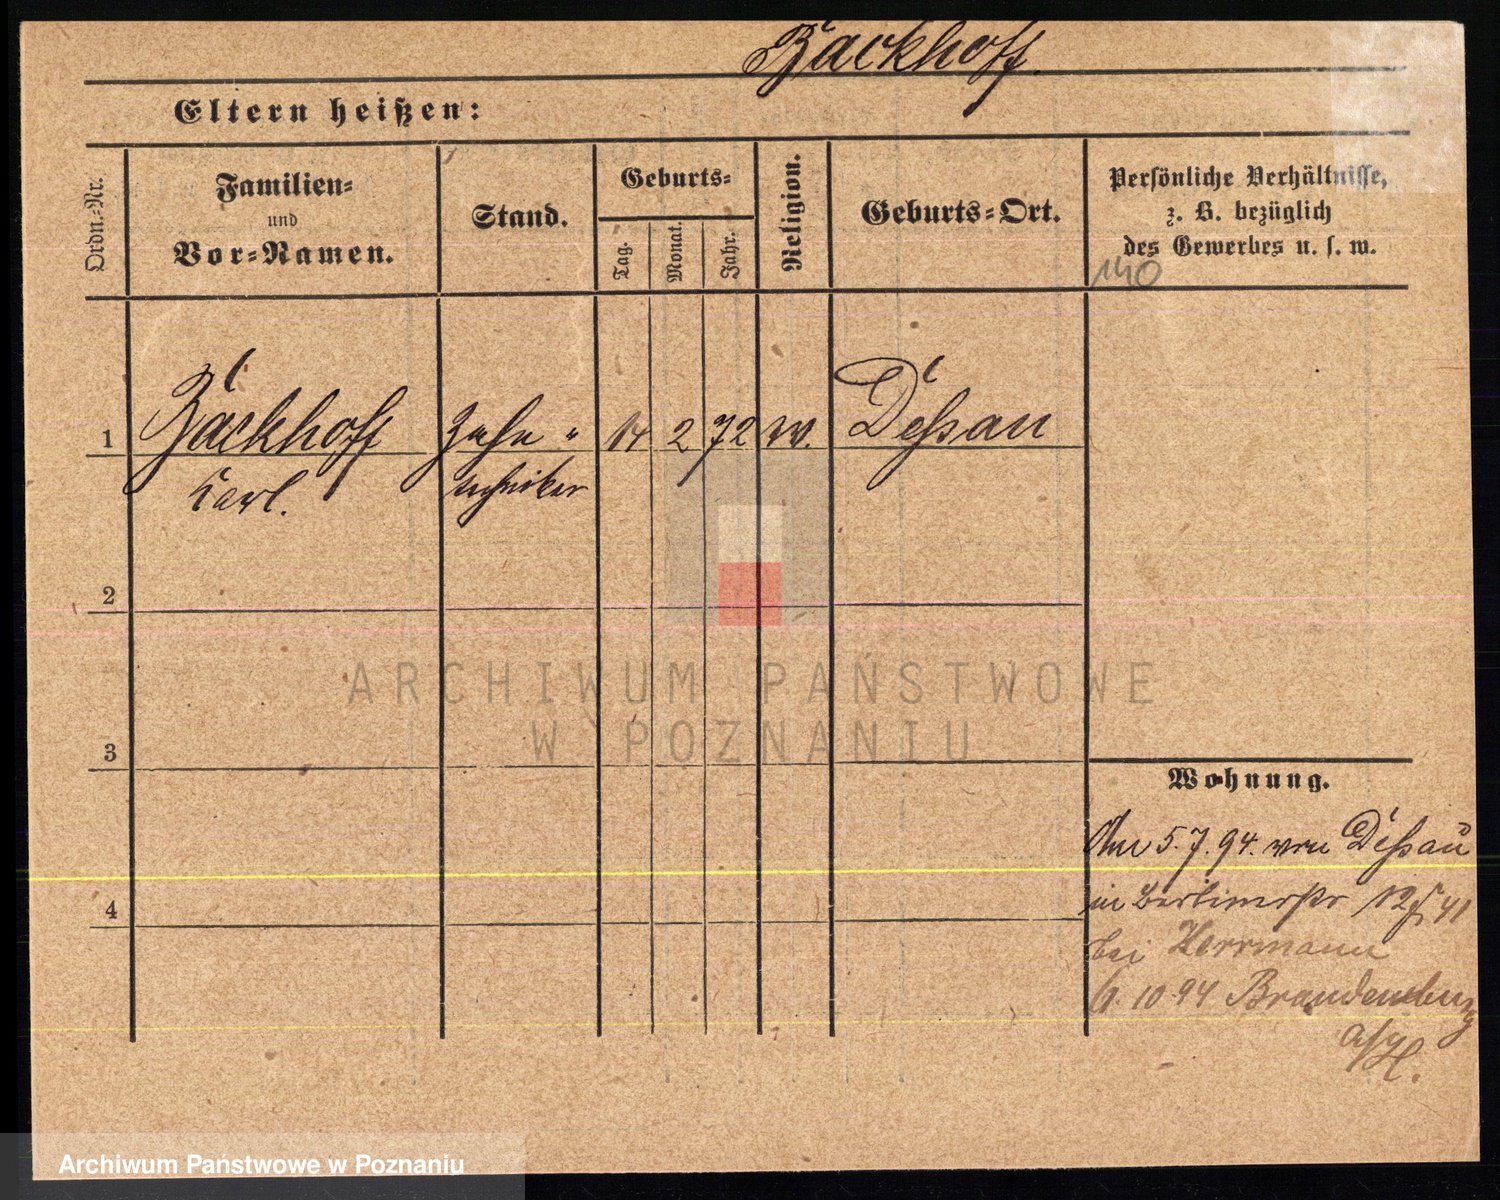 Backhoff.
Eltern heißen:
Ordn.-Nr.
Familien-
und
Vor-Namen.
Stand.
Geburts-
Tag.
Monat.
Jahr.
Religion.
Geburts-Ort.
Persönliche Verhältnisse,
z. B. bezüglich
des Gewerbes u. s. w.
140
1 Backhoff Zahn- 14 2 72 Dessau
Carl. techniker
2
3
4
Wohnung.
5.7.94. von Dessau
in Berlinerstr 12 41
bei Herrmann
10 94 Brandenburg
a/H.
ARCHIWUM PAŃSTWOWE
W POZNANIU
Archiwum Państwowe w Poznaniu